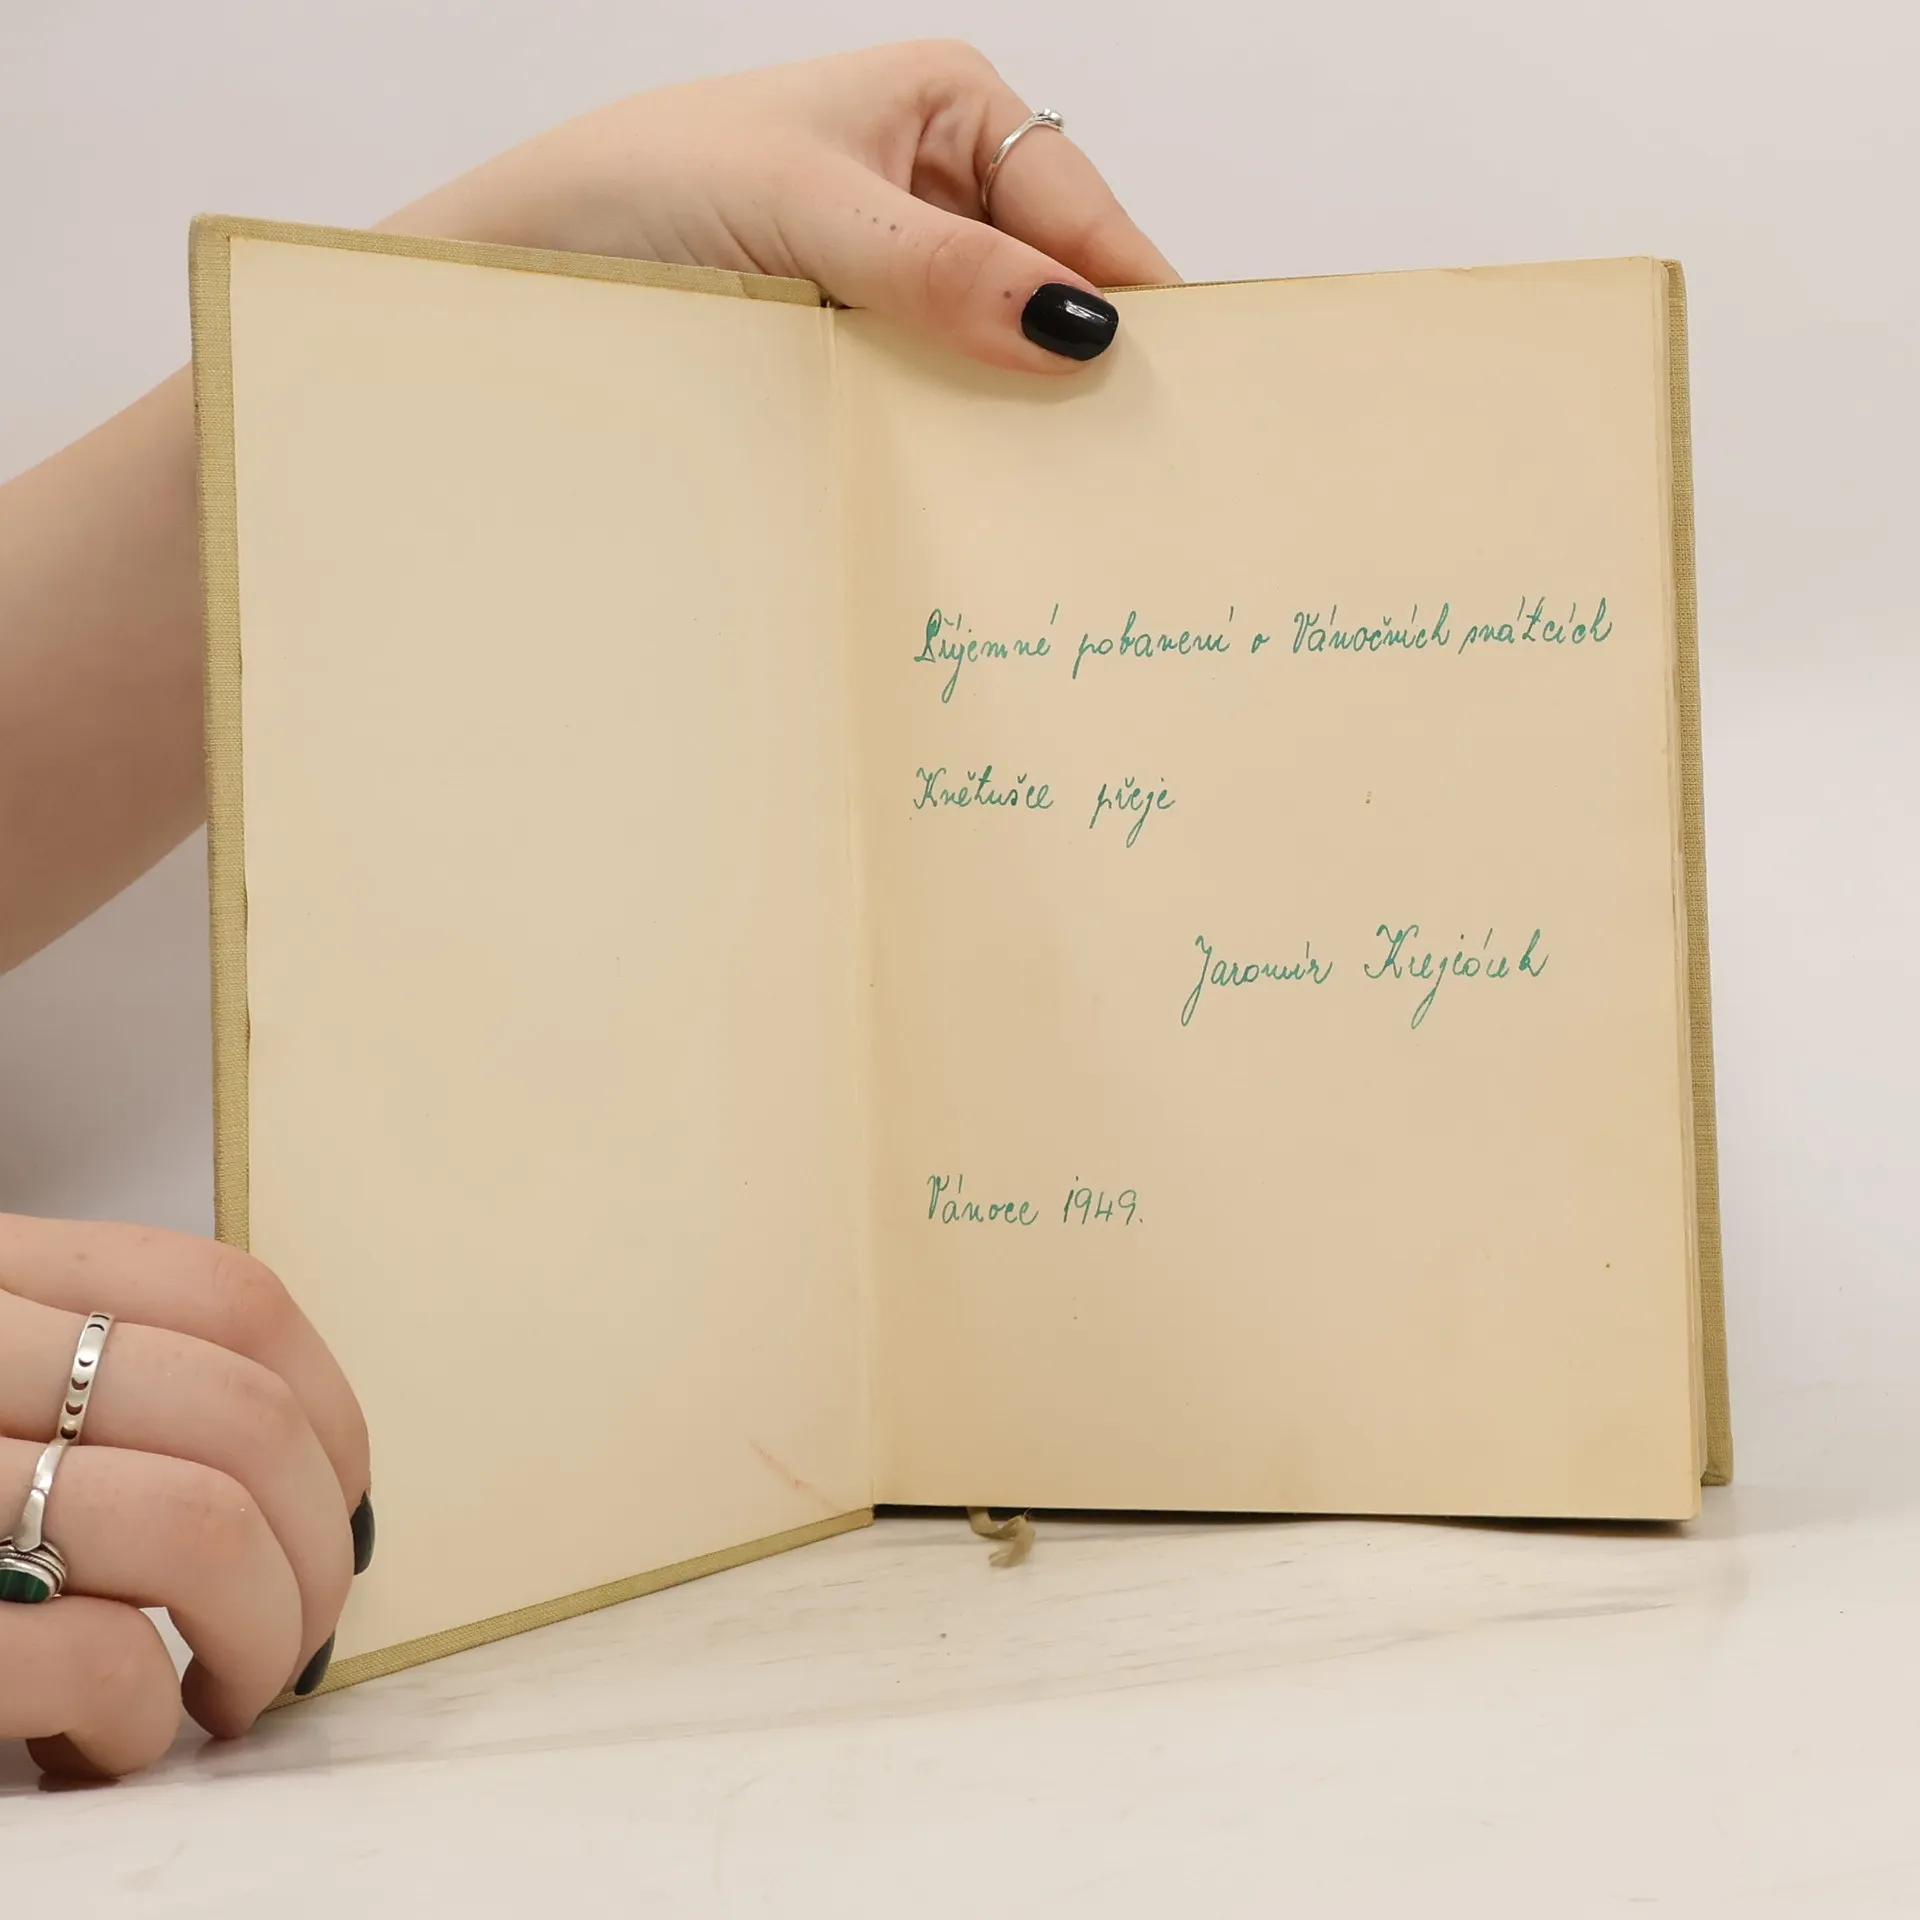 Příjemné pobavení o Vánočních svátcích
Květušce přeje
Jaromír
Vánoce 1949.